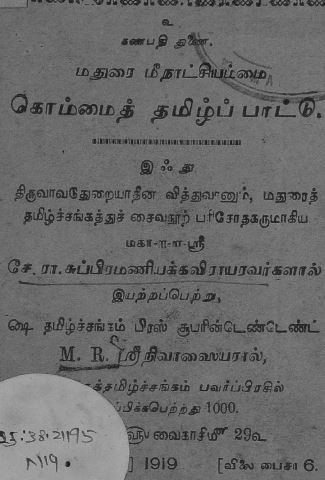 உ
கணபதி துணை.
மதுரை மீநாட்சியம்மை
கொம்மைத் தமிழ்ப் பாட்டு.
இஃது
திருவாவடுதுறையாதீன வித்துவானும், மதுரைத்
தமிழ்ச்சங்கத்துச் சைவநூற் பரிசோதகருமாகிய
மகா-ள-ள-ஸ்ரீ
சே. ரா. சுப்பிரமணியக்கவிராயரவர்களால்
இயற்றப்பெற்று,
ஷை தமிழ்ச்சங்கம் பிரஸ் சூபரின்டெண்டெண்ட்
M. R. ஸ்ரீநிவாஸையரால்,
தமிழ்ச்சங்கம் பவர்ப்பிரஸில்
பிக்கபெற்றது 1000.
வைகாசிமீ 29உ
] 1919 [விலை பைசா 6.
38:21195
N19.